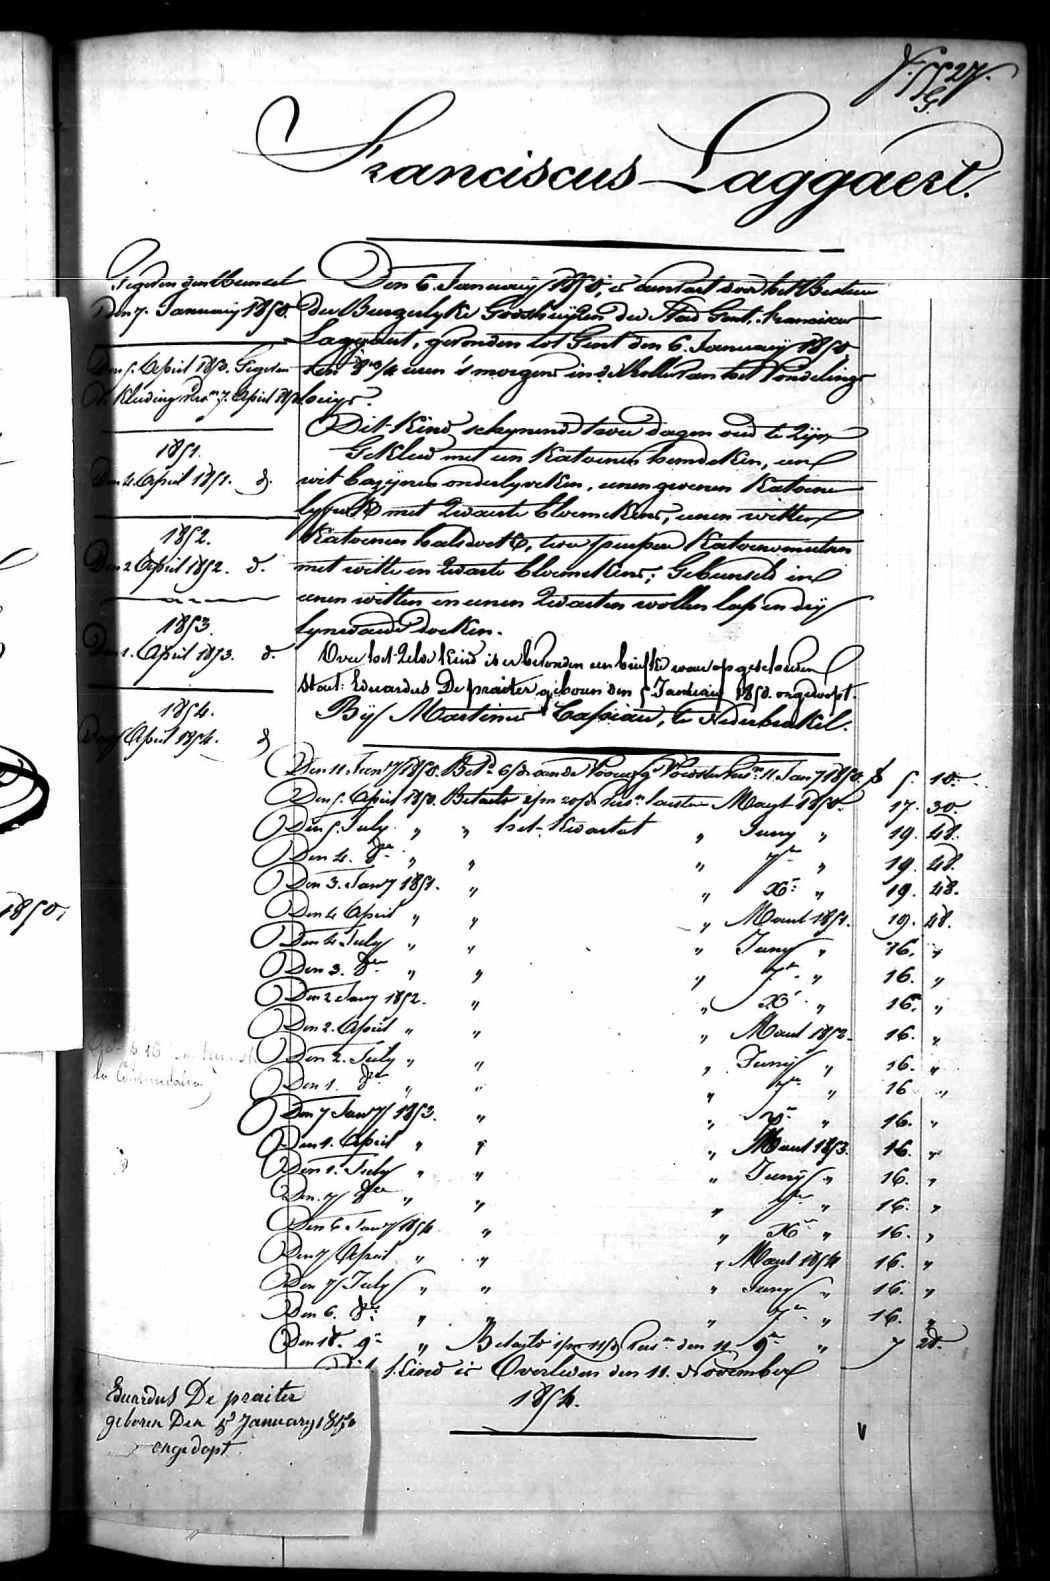 27.
G.
Franciscus Laggaert.
Gegeven den Bundel
Den 7. January 1850.
Den 5. April 1850. Gegeven
de Kleeding 7. April 1850
1851.
Den 4. April 1851. d.
1852.
Den 2 April 1852. d.
1853.
Den 1. April 1853. d.
1854.
Den 7 April 1854. d
Den 6. January 1850, is aenvaert door het Bestier
der Burgerlyke Godshuyzen der Stad Gent, Franciscus
Laggaert, gevonden tot Gent den 6. January 1850
ten uren 's morgens in de Rolle van het Vondeling
huys.
Dit Kind schynend twee dagen oud te zyn
Gekleed met een Katoenen hemdeken, een
wit bazynen onderlyveken, eenen Katoene
lyf met zwarte bloemekens, eenen witten
Katoenen halsdoek, twee Katoene mutsen
met witte en zwarte bloemekens; Gebunseld in
eenen witten en eenen zwarten wollen lap en dry
lynwaede doeken.
Over het zelve Kind is er bevonden een briefke waer op geschreven
staet: Eduardus De praiter geboren den 5 January 1850. ongedoopt.
By Martinus Cassiau, te Nederbrakel.
Den 11. Jany 1850. Bet. 11 Jany 1850. f 5. 10.
Den 5. April 1850. Betaelt Maert 1850. 17. 30.
Den 5. July " " het Kwartaet " Juny " 19. 48.
Den 4. 8er " " " 7er " 19. 48.
Den 3. Jany 1851. " " Xr " 19. 48.
Den 4 April " " " Maert 1851. 19. 48.
Den 4 July " " " Juny " 16. "
Den 3. 8er " " " 7er " 16. "
Den 2 Jany 1852. " " Xr " 16. "
Den 2. April " " " Maert 1852. 16. "
Den 2. July " " " Juny " 16. "
Den 1. 8er " " " 7er " 16 "
Den 7 Jany 1853. " " Xr " 16. "
Den 1. April " " " Maert 1853. 16. "
Den 1. July " " " Juny " 16. "
Den 7 8er " " " 7er " 16. "
Den 6 Jany 1854 " " Xr " 16. "
Den 7 April " " " Maert 1854 16. "
Den 7 July " " " Juny " 16. "
Den 6. 8er " " " 7er " 16. "
Den 18. 9er " Betaelt den 11 9er " 7 28.
Dit Kind is Overleden den 11. November
1854.
1850,
Eduardus De praiter
geboren Den 5d January 1850
ongedopt